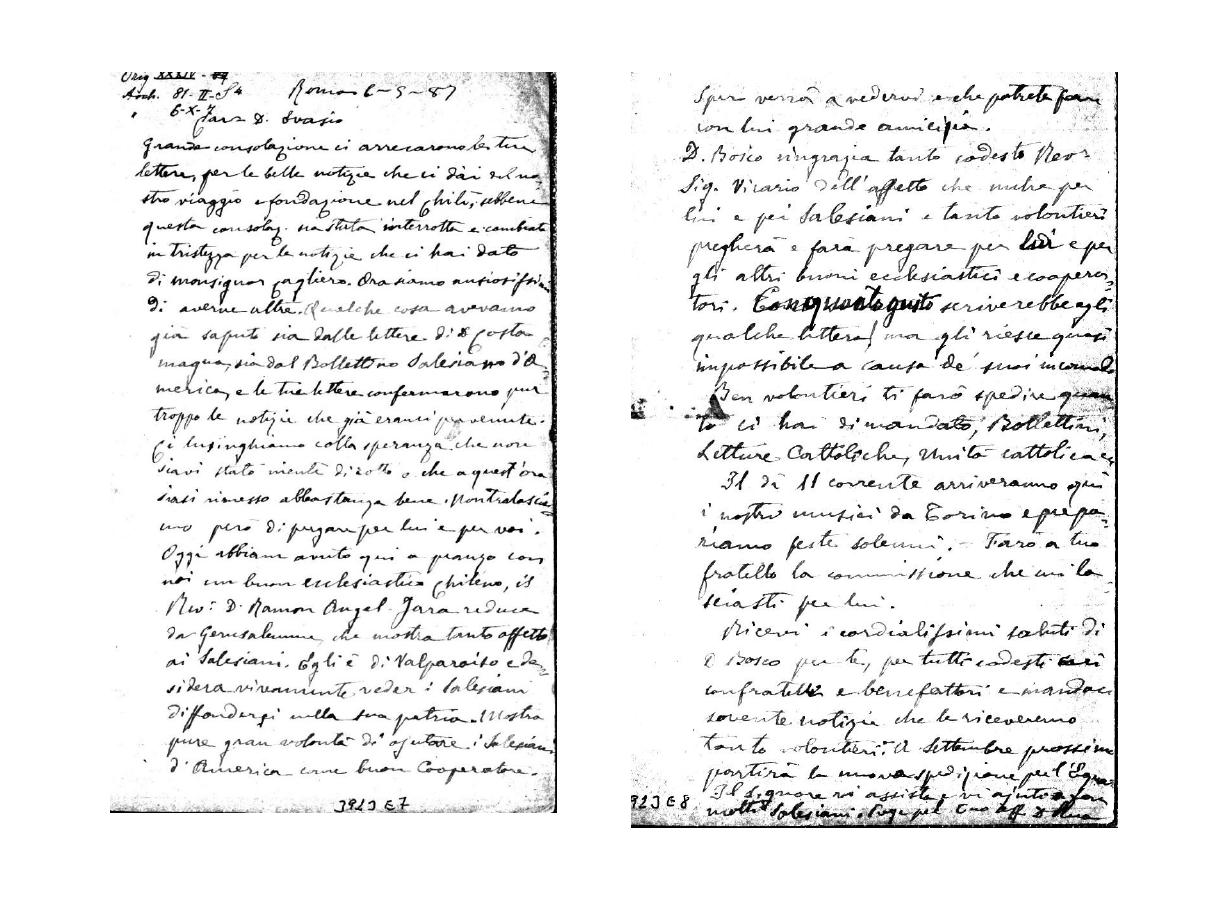 Orig XXXIV - 87
Arch. 81-II-S4
6-X-7
Roma 6-5-87
Caro D. Evasio
Grande consolazione ci arrecarono le tue
lettere, per le belle notizie che ci dai del no-
stro viaggio e fondazione nel Chilì, sebbene
questa consolaz. sia stata interrotta e cambiata
in tristezza per le notizie che ci hai dato
di monsignor Cagliero. Ora siamo ansiosissimi
di averne altre. Qualche cosa avevamo
già saputo sia dalle lettere di D Costa-
magna, sia dal Bollettino Salesiano d'A-
merica, e le tue lettere confermarono pur
troppo le notizie che già eranci pervenute.
Ci lusinghiamo colla speranza che non
siavi stato niente di rotto o che a quest'ora
siasi rimesso abbastanza bene. Non tralascia-
mo però di pregare per lui e per voi.
Oggi abbiam avuto qui a pranzo con
noi un buon ecclesiastico Chileno, il
Revo: D. Ramon Angel Jara reduce
da Gerusalemme, che mostra tanto affetto
ai Salesiani. Egli è di Valparaiso e de-
sidera vivamente veder i Salesiani
diffondersi nella sua patria. Mostra
pure gran volontà di ajutare i Salesiani
d'America come buon Cooperatore.
3923 E7
Spero verrà a vedervi e che potrete fare
con lui grande amicizia.
D. Bosco ringrazia tanto codesto Revo:
Sig. Vicario dell'affetto che nutre per
lui e pei Salesiani e tanto volontieri
pregherà e farà pregare per lui e per
gli altri buoni ecclesiastici e coopera-
tori. Con quanto gusto scriverebbe egli
qualche lettera! ma gli riesce quasi
impossibile a causa de' suoi incomodi
Ben volontieri ti farò spedire quan-
to ci hai dimandato, Bollettini,
Letture Cattoliche, Unità cattolica ec.
Il dì 11 corrente arriveranno qui
i nostri musici da Torino e prepa-
riamo feste solenni. - Farò a tuo
fratello la commissione che mi la-
sciasti per lui.
Ricevi i cordialissimi saluti di
D Bosco per te, per tutti codesti cari
confratelli e benefattori e mandaci
sovente notizie che le riceveremo
tanto volontieri. A Settembre prossimo
partirà la nuova spedizione per l'Equa.
Il Signore vi assista e vi ajuti a far
molti Salesiani. Prega pel tuo aff D Rua
923 E 8